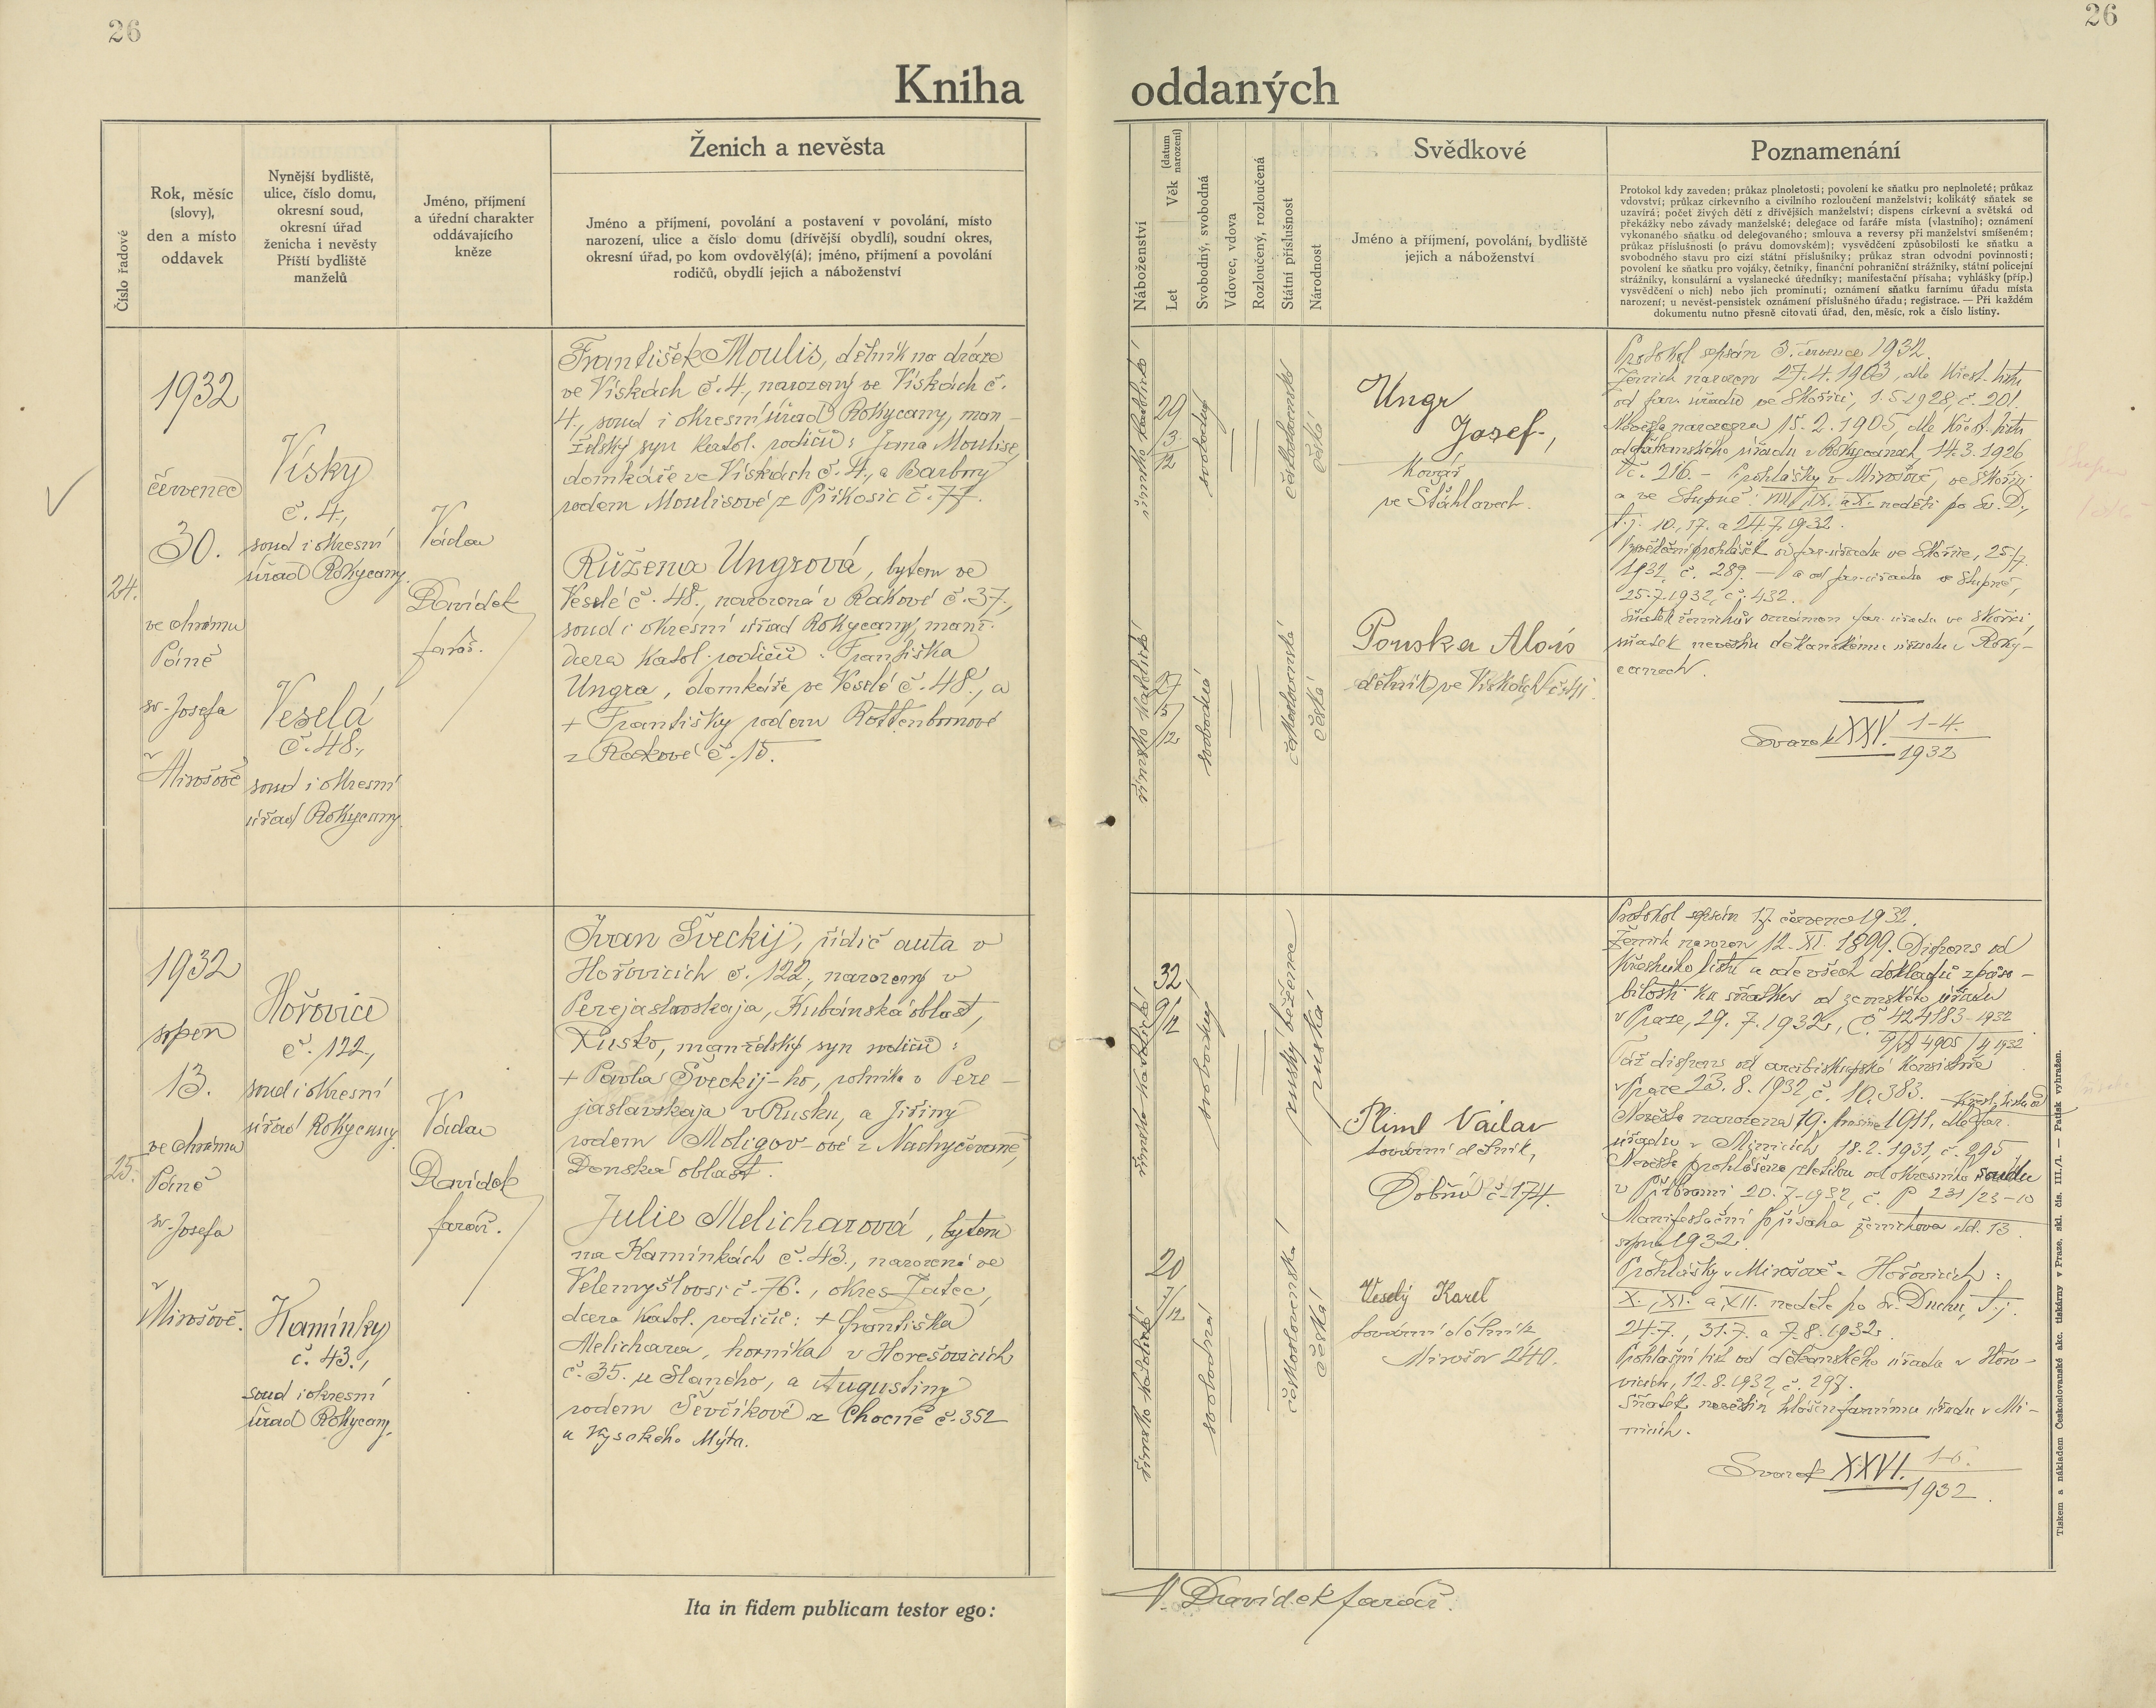 26
26
Kniha oddaných
Číslo řadové
Rok, měsíc
(slovy),
den a místo
oddavek
Nynější bydliště,
ulice, číslo domu,
okresní soud,
okresní úřad
ženicha i nevěsty
Příští bydliště
manželů
Jméno, příjmení
a úřední charakter
oddávajícího
kněze
Ženich a nevěsta
Jméno a příjmení, povolání a postavení v povolání, místo
narození, ulice a číslo domu (dřívější obydlí), soudní okres,
okresní úřad, po kom ovdovělý(á); jméno, příjmení a povolání
rodičů, obydlí jejich a náboženství
Náboženství
Let Věk (datum narození)
Svobodný, svobodná
Vdovec, vdova
Rozloučený, rozloučená
Státní příslušnost
Národnost
Svědkové
Jméno a příjmení, povolání, bydliště
jejich a náboženství
Poznamenání
Protokol kdy zaveden; průkaz plnoletosti; povolení ke sňatku pro neplnoleté; průkaz
vdovství; průkaz církevního a civilního rozloučení manželství; kolikátý sňatek se
uzavírá; počet živých dětí z dřívějších manželství; dispens církevní a světská od
překážky nebo závady manželské; delegace od faráře místa (vlastního); oznámení
vykonaného sňatku od delegovaného; smlouva a reversy při manželství smíšeném;
průkaz příslušnosti (o právu domovském); vysvědčení způsobilosti ke sňatku a
svobodného stavu pro cizí státní příslušníky; průkaz stran odvodní povinnosti;
povolení ke sňatku pro vojáky, četníky, finanční pohraniční strážníky, státní policejní
strážníky, konsulární a vyslanecké úředníky; manifestační přísaha; vyhlášky (příp.)
vysvědčení o nich) nebo jich prominutí; oznámení sňatku farnímu úřadu místa
narození; u nevěst-pensistek oznámení příslušného úřadu; registrace. — Při každém
dokumentu nutno přesně citovati úřad, den, měsíc, rok a číslo listiny.
24.
1932
červenec
30.
ve chrámu
Páně
sv. Josefa
v
Mirošově
Vísky
č. 4.,
soud i okresní
úřad Rokycany.
Veselá
č. 48.,
soud i okresní
úřad Rokycany.
Václav
Davídek
farář.
František Moulis, dělník na dráze
ve Vískách č. 4., narozený ve Vískách č.
4., soud i okresní úřad Rokycany, man-
želský syn katol. rodičů: Jana Moulise,
domkáře ve Vískách č. 4., a Barbory
rodem Moulisové z Příkosic č. 77.
Růžena Ungrová, bytem ve
Veselé č. 48., narozená v Rakové č. 37.,
soud i okresní úřad Rokycany, manž.
dcera katol. rodičů: Františka
Ungra, domkáře ve Veselé č. 48., a
+ Františky rodem Rottenbornové
z Rakové č. 15.
římsko katolické
29
3/12
svobodný
československá
česká
římsko katolické
27
5/12
svobodná
československá
česká
Ungr
Josef.,
kovář
ve Štáhlavech.
Pouska Alois
dělník ve Vískách č. 41.
Protokol sepsán 3. července 1932.
Ženich narozen 27.4.1903, dle křest. listu
od far. úřadu ve Skořici, 1.5.1928, č. 201.
Nevěsta narozena 15.2.1905, dle křest. listu
od děkanského úřadu v Rokycanech, 14.3.1926
č. 216. - Prohlášky v Mirošově, ve Skořici
a ve Stupně: VIII., IX. a X. neděli po Sv. D.,
t. j. 10., 17. a 24.7.1932.
Vysvědčení prohlášek od far. úřadu ve Skořici, 25.7.
1932, č. 289. — a od far. úřadu ve Stupně,
25.7.1932, č. 432.
Sňatek ženichův oznámen far. úřadu ve Skořici,
sňatek nevěstin děkanskému úřadu v Roky-
canech.
Svazek XXV. 1-4.
1932
25.
1932
srpen
13.
ve chrámu
Páně
sv. Josefa
v
Mirošově.
Hořovice
č. 122.,
soud i okresní
úřad Rokycany.
Kamínky
č. 43.,
soud i okresní
úřad Rokycany.
Václav
Davídek
farář.
Ivan Šveckij, řidič auta v
Hořovicích č. 122., narozený v
Perejaslavskaja, Kubánská oblast,
Rusko, manželský syn rodičů:
+ Pavla Šveckij-ho, rolníka v Pere-
jaslavskaja v Rusku, a Jiřiny
rodem Moligov-ové z Nachyčevaně,
Donská oblast.
Julie Melicharová, bytem
na Kamínkách č. 43., narozená ve
Velemyšlovsi č. 76., okres Žatec,
dcera katol. rodičů: + Františka
Melichara, horníka v Hořešovicích
č. 35. u Slaného, a Augustiny
rodem Ševčíkové z Chocně č. 352
u Vysokého Mýta.
římsko katolické
32
9/12
svobodný
ruský běženec
ruská
římsko katolické
20
7/12
svobodná
československá
česká
Pliml Václav
tovární dělník,
Dobřív č. 174.
Veselý Karel
tovární dělník
Mirošov 240.
Protokol sepsán 17. července 1932.
Ženich narozen 12. XI. 1899. Dispens od
křestního listu a ode všech dokladů způso-
bilosti ku sňatku od zemského úřadu
v Praze, 29. 7. 1932, č. 424183-1932
9/A 4905/4 1932
Táž dispens od arcibiskupské konsistoře
v Praze 23. 8. 1932, č. 10.383.
Nevěsta narozena 19. prosince 1911, dle far. křest. listu od
úřadu v Mínicích 18.2.1931, č. 295
Nevěsta prohlášena zletilou od okresního soudu
v Příbrami 20.7.1932, č. P 231/23-10
Manifestační přísaha ženichova dd. 13.
srpna 1932.
Prohlášky v Mirošově - Hořovicích:
X., XI. a XII. neděle po Sv. Duchu, t. j.
24.7., 31.7. a 7.8.1932.
Prohlašní list od děkanského úřadu v Hořo-
vicích, 12.8.1932, č. 297.
Sňatek nevěstin hlášen farnímu úřadu v Mí-
nicích.
Svazek XXVI. 1-6.
1932.
Ita in fidem publicam testor ego:
V. Davídek farář.
Tiskem a nákladem Českoslovanské akc. tiskárny v Praze. skl. čís. III./1. — Patisk vyhražen.